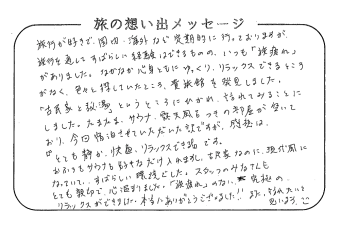 旅の想い出メッセージ
旅行が好きで、国内・海外など定期的に行っておりますが、
旅行を通してすばらしい経験はできるものの、いつも「旅疲れ」
がありました。なかなか心身ともにゆっくり、リラックスできるところ
がなく、色々と探していたところ、貴旅館を発見しました。
"古民家と放湯"というところにひかれ、訪れてみることに
しました。たまたま、サウナ、露天風呂つきの部屋が空いて
おり、今回宿泊させていただいた訳ですが、感想は、
"とても静か、快適、リラックスできる場"です。
おふろもサウナも好きなだけ入れますし、古民家なのに、現代風に
なっていて、すばらしい環境でした。スタッフのみなさんも
とても親切で、心温まりました。「旅疲れ」のない、究極の
リラックスができました。本当にありがとうございました!!また、訪れたいと
思います。